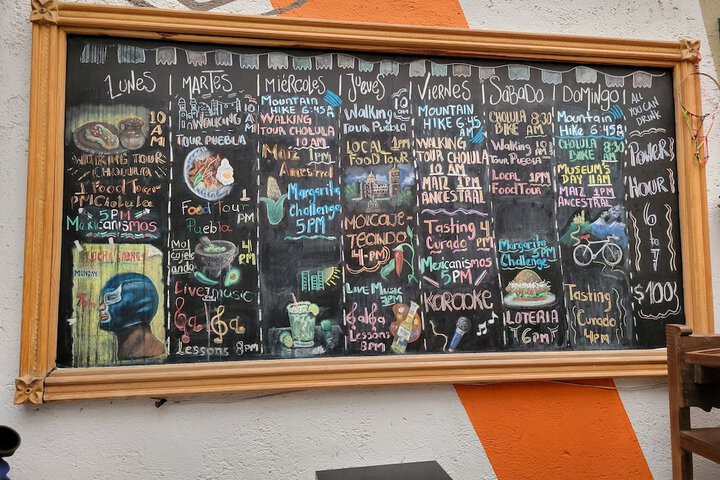 LUNES
10
A
M
WALKING
TOUR
CHOLULA
1 Food Tour
PM Cholula
5 PM
Mexicanismos
LUCHA LIBRE
MONDAY
MARTES
10
AM
WALKING
TOUR PUEBLA
Food Tour
Puebla
1
PM
4
PM
Live music
Salsa
Lessons 8PM
MIÉRCOLES
MOUNTAIN
HIKE 6:45 A
WALKING
TOUR CHOLULA
Maiz 1PM
Ancestral
Margarita
Challenge
5PM
JUEVES
Walking 10
AM
Tour Puebla
LOCAL 1PM
Food Tour
MOLCAJE-
TEANDO
(4 PM)
LIVE MUSIC
8PM
Salsa
Lessons
8PM
VIERNES
MOUNTAIN
HIKE 6:45
AM
WALKING
TOUR CHOLULA
10 AM
MAIZ 1PM
ANCESTRAL
Tasting 4
Curado PM
Mexicanismos
5PM
KARAOKE
SABADO
CHOLULA 8:30
BIKE AM
WALKING 10
Tour Puebla AM
LOCAL 1
Food Tour PM
Margarita 5
Challenge PM
LOTERIA
6PM
DOMINGO
MOUNTAIN
HIKE 6:45
CHOLULA 8:30
BIKE AM
MUSEUM'S
DAY 11AM
MAIZ 1PM
ANCESTRAL
Tasting
Curado
4PM
ALL
YOU CAN
DRINK
POWER
HOUR
6
to
7
$100